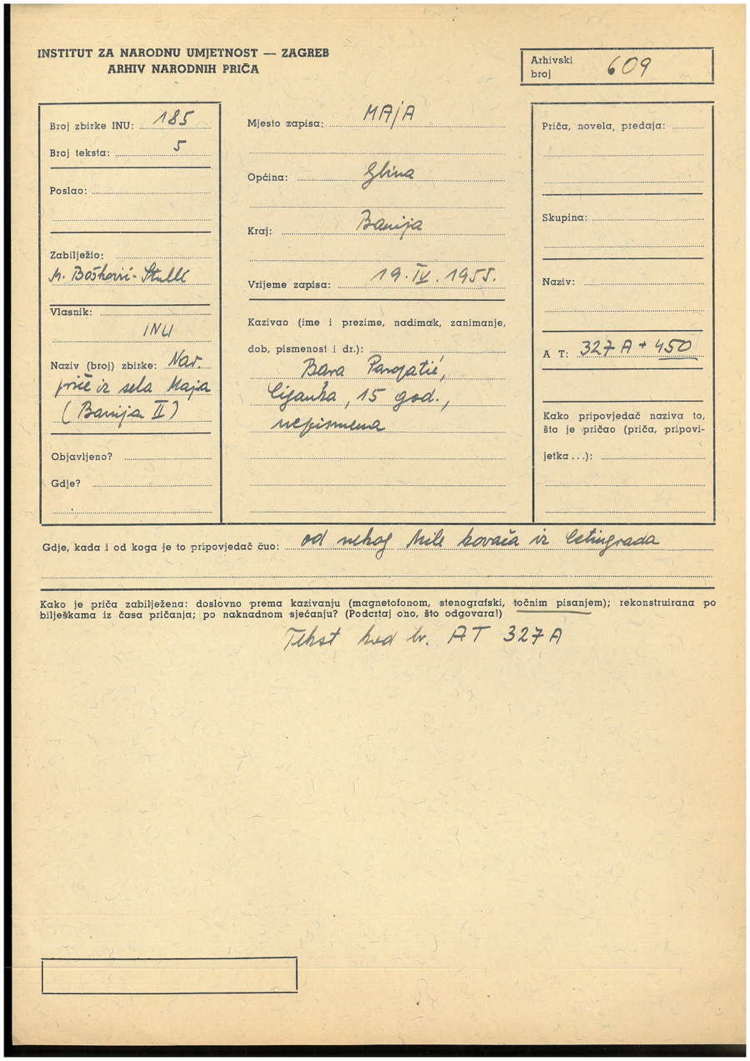 INSTITUT ZA NARODNU UMJETNOST — ZAGREB
ARHIV NARODNIH PRIČA
Arhivski broj 609
Broj zbirke INU: 185
Broj teksta: 5
Poslao:
Zabilježio:
M. Bošković-Stulli
Vlasnik:
INU
Naziv (broj) zbirke: Nar.
priče iz sela Maja
(Banija II)
Objavljeno?
Gdje?
Mjesto zapisa: MAJA
Općina: Glina
Kraj: Banija
Vrijeme zapisa: 19. IV. 1955.
Kazivao (ime i prezime, nadimak, zanimanje,
dob, pismenost i dr.):
Bara
Ciganka, 15 god.,
nepismena
Priča, novela, predaja:
Skupina:
Naziv:
A T: 327 A + 450
Kako pripovjedač naziva to,
što je pričao (priča, pripovi-
jetka...):
Gdje, kada i od koga je to pripovjedač čuo: od nekog Mile kovača iz Cetingrada
Kako je priča zabilježena: doslovno prema kazivanju (magnetofonom, stenografski, točnim pisanjem); rekonstruirana po
bilješkama iz časa pričanja; po naknadnom sjećanju? (Podcrtaj ono, što odgovara!)
Tekst kod br. AT 327 A